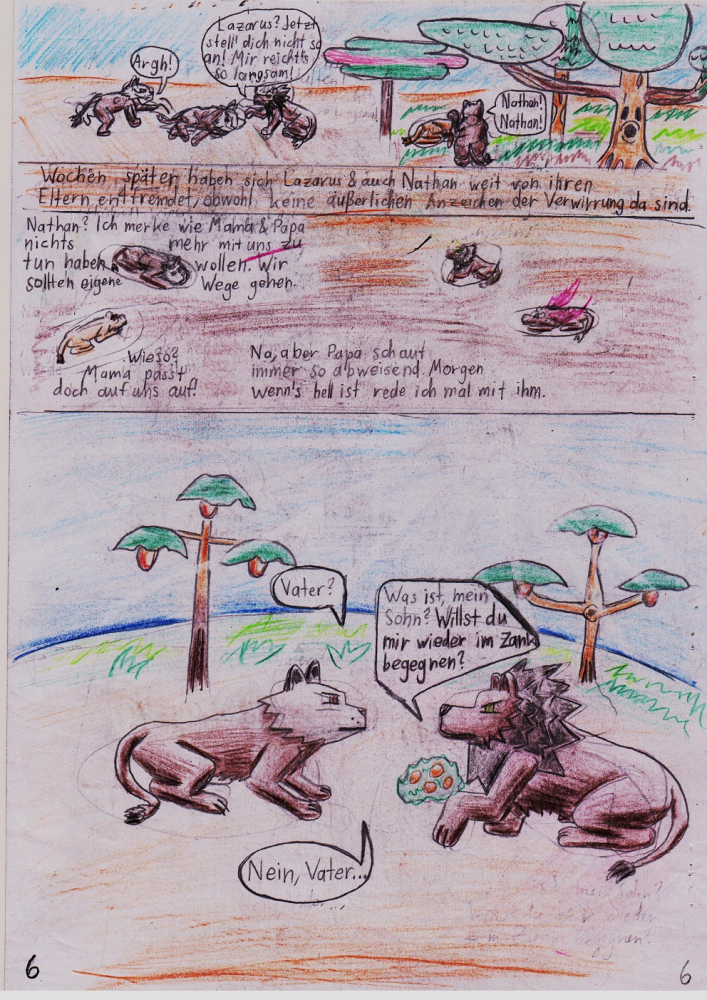 Argh!
Lazarus? Jetzt
stell' dich nicht so
an! Mir reicht's
so langsam!
Nathan!
Nathan!
Wochen später haben sich Lazarus & auch Nathan weit von ihren
Eltern entfremdet, obwohl keine äußerlichen Anzeichen der Verwirrung da sind.
Nathan? Ich merke wie Mama & Papa
nichts mehr mit uns zu
tun haben wollen. Wir
sollten eigene Wege gehen.
Wieso?
Mama passt
doch auf uns auf!
Na, aber Papa schaut
immer so abweisend. Morgen
wenn's hell ist rede ich mal mit ihm.
Vater?
Was ist, mein
Sohn? Willst du
mir wieder im Zank
begegnen?
Nein, Vater...
6
6